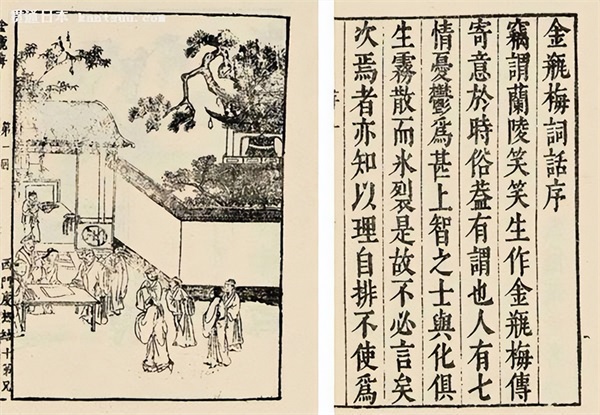 金瓶梅詞話序
竊謂蘭陵笑笑生作金瓶梅傳
寄意於時俗葢有謂也人有七
情憂鬱爲甚上智之士與化俱
生霧散而氷裂是故不必言矣
次焉者亦知以理自排不使爲
金瓶梅
第一回
西門慶熱結十弟兄
通日本
kantsuu.com